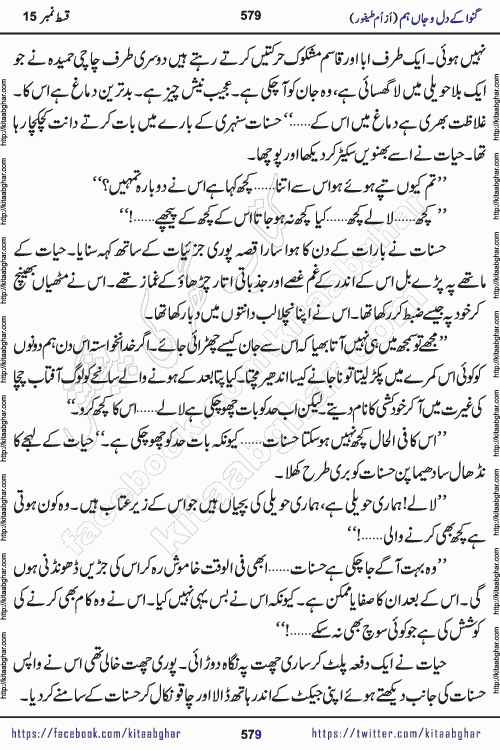 گنوا کے دل و جاں ہم (از اُم طیفور) 579 قسط نمبر 15
نہیں ہوئی۔ ایک طرف ابا اور قاسم مشکوک حرکتیں کرتے رہتے ہیں دوسری طرف چاچی حمیدہ نے جو
ایک بلا حویلی میں لا گھسائی ہے، وہ جان کو آ چکی ہے۔ عجیب نیش چیز ہے۔ بدترین دماغ ہے اس کا۔
غلاظت بھری ہے دماغ میں اس کے......‘‘ حسنات سنہری کے بارے میں بات کرتے دانت کچکچا رہا
تھا۔ حیات نے اسے بھنویں سکیڑ کر دیکھا اور پوچھا۔
’’تم کیوں تپے ہوئے ہو اس سے اتنا...... کچھ کہا ہے اس نے دوبارہ تمہیں؟‘‘
’’کچھ...... لالے کچھ...... کیا کچھ نہ ہو جاتا اس کے کچھ کے پیچھے......!‘‘
حسنات نے بارات کے دن کا ہوا سارا قصہ پوری جزئیات کے ساتھ کہہ سنایا۔ حیات کے
ماتھے پہ پڑے بل اس کے اندر کے غم غصے اور جذباتی اتار چڑھاؤ کے غماز تھے۔ اس نے مٹھیاں بھینچ
کر خود پہ جیسے ضبط کر رکھا تھا۔ اس نے اپنا نچلا لب دانتوں میں دبا رکھا تھا۔
’’مجھے تو سمجھ میں ہی نہیں آتا بھیا کہ اس سے جان کیسے چھڑائی جائے۔ اگر خدانخواستہ اس دن ہم دونوں
کو کوئی اس کمرے میں پکڑ لیتا تو نا جانے کیسا اندھیر مچتا۔ کیا پتا بعد کے ہونے والے سانحے کو لوگ آفتاب چچا
کی غیرت میں آ کر خودکشی کا نام دیتے۔ لیکن اب حد کو بات چھو چکی ہے لالے...... اس کا کچھ کرو۔‘‘
’’اس کا فی الحال کچھ نہیں ہو سکتا حسنات...... کیونکہ بات حد کو چھو چکی ہے۔‘‘ حیات کے لہجے کا
نڈھال سا دھیما پن حسنات کو بری طرح کھلا۔
’’لالے! ہماری حویلی ہے، ہماری حویلی کی بچیاں ہیں جو اس کے زیر عتاب ہیں۔ وہ کون ہوتی
ہے کچھ بھی کرنے والی......!‘‘
’’وہ بہت آگے جا چکی ہے حسنات...... ابھی فی الوقت خاموش رہ کر اس کی جڑیں ڈھونڈنی ہوں
گی۔ اس کے بعد ان کا صفایا ممکن ہے۔ کیونکہ اس نے بس یہی نہیں کیا۔ اس نے وہ کام بھی کرنے کی
کوشش کی ہے جو کوئی سوچ بھی نہ سکے......!‘‘
حیات نے ایک دفعہ پلٹ کر ساری چھت پہ نگاہ دوڑائی۔ پوری چھت خالی تھی اس نے واپس
حسنات کی جانب دیکھتے ہوئے اپنی جیکٹ کے اندر ہاتھ ڈالا اور چاقو نکال کر حسنات کے سامنے کر دیا۔
https://facebook.com/kitaabghar 579 https://twitter.com/kitaabghar
http://kitaabghar.com